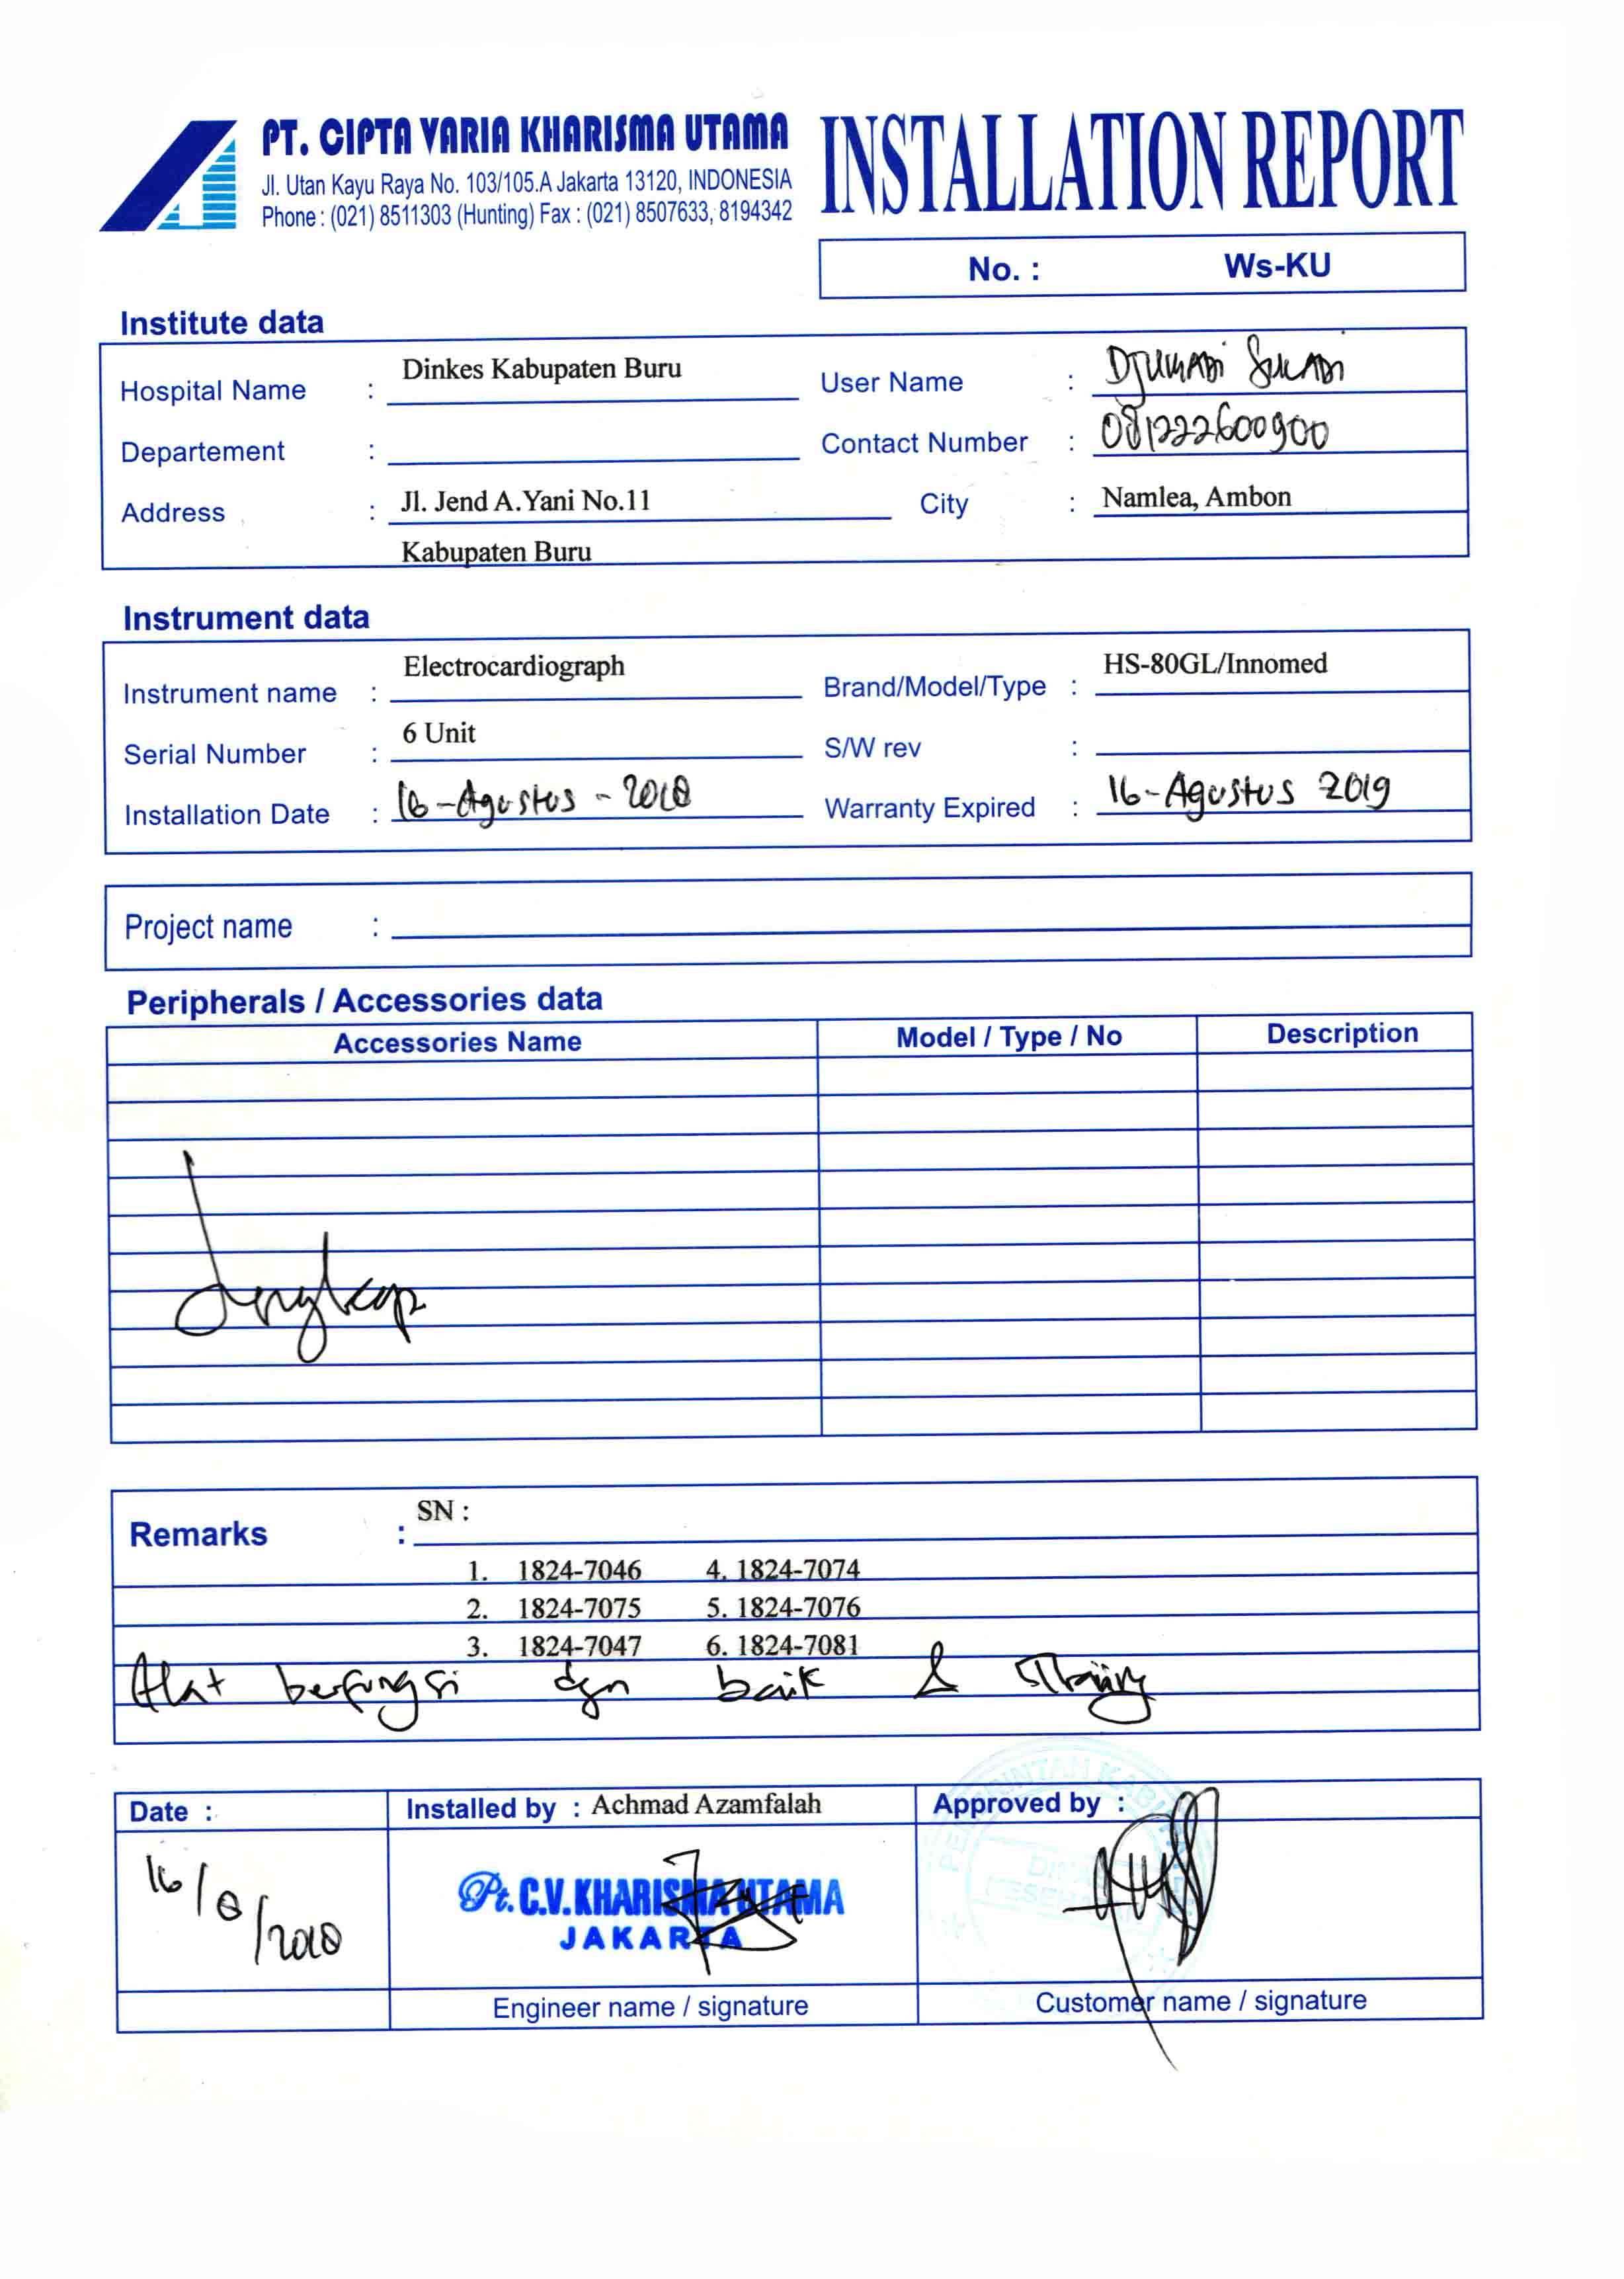 PT. CIPTA VARIA KHARISMA UTAMA
Jl. Utan Kayu Raya No. 103/105.A Jakarta 13120, INDONESIA
Phone : (021) 8511303 (Hunting) Fax : (021) 8507633, 8194342
INSTALLATION REPORT
No. : Ws-KU
Institute data
Hospital Name : Dinkes Kabupaten Buru User Name :
Departement : Contact Number : 081222600900
Address : Jl. Jend A.Yani No.11 City : Namlea, Ambon
Kabupaten Buru
Instrument data
Instrument name : Electrocardiograph Brand/Model/Type : HS-80GL/Innomed
Serial Number : 6 Unit S/W rev :
Installation Date : 16-Agustus - 2018 Warranty Expired : 16-Agustus 2019
Project name :
Peripherals / Accessories data
Accessories Name Model / Type / No Description
Lengkap
Remarks : SN :
1. 1824-7046 4. 1824-7074
2. 1824-7075 5. 1824-7076
3. 1824-7047 6. 1824-7081
Alat berfungsi dgn baik & Training
Date : Installed by : Achmad Azamfalah Approved by :
16/8/2018
Pt. C.V. KHARISMA UTAMA
JAKARTA
PEMERINTAH KABUPATEN
DINAS
KESEHATAN
Engineer name / signature Customer name / signature